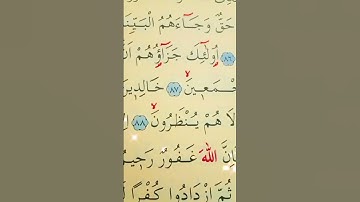 حَقٌّ وَجَاءَهُمُ الْبَيِّنَ
﴿٨٦﴾ أُولَٰئِكَ جَزَاؤُهُمْ اَنَّ
جْمَعِينَ ﴿٨٧﴾ خَالِدِينَ
لَا هُمْ يُنْظَرُونَ ﴿٨٨﴾ اِلَّا
اِنَّ اللّٰهَ غَفُورٌ رَحِيمٌ
ثُمَّ ازْدَادُوا كُفْرًا لَنْ